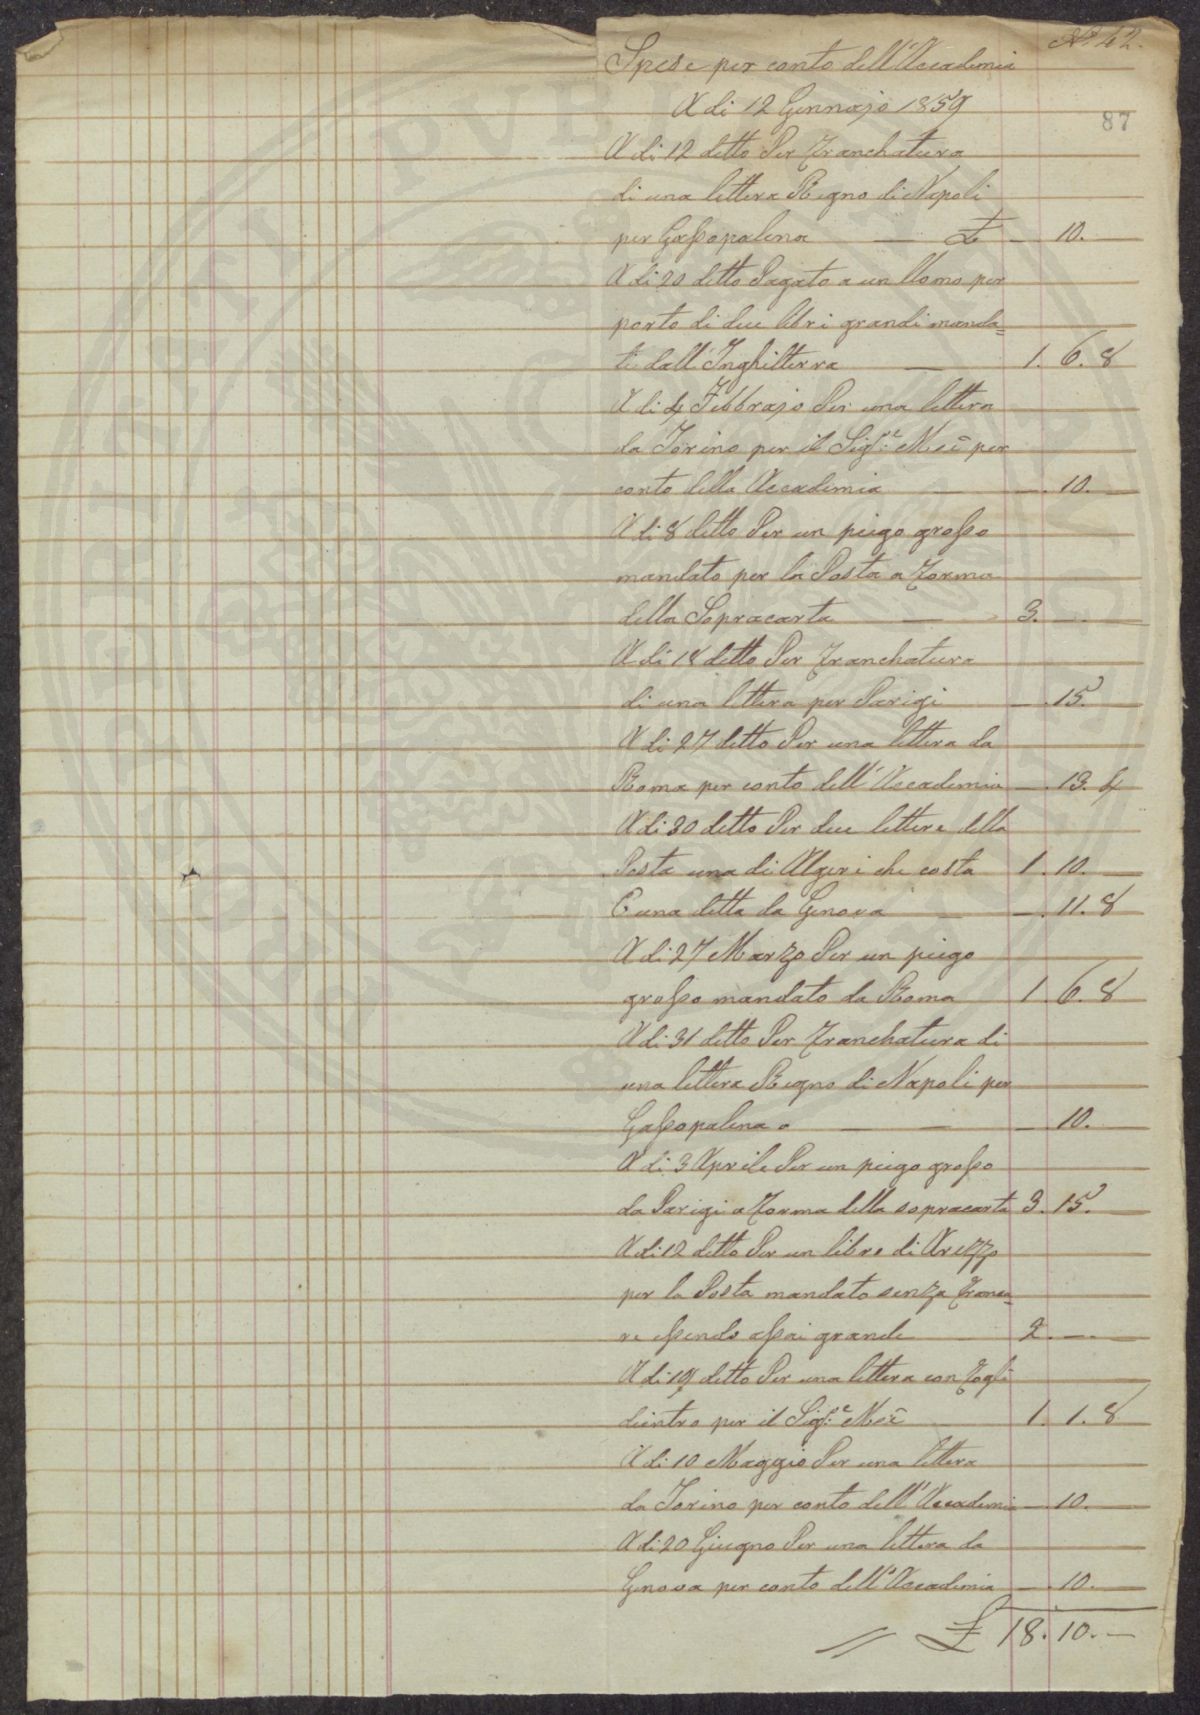 N.° 42.
Spese per conto dell'Accademia
A di 12 Gennajo 1859
87
A di 12 detto Per Franchatura
di una lettera Regno di Napoli
per Gassopalena — £ — 10.
A di 20 detto Pagato a un Uomo per
porto di due libri grandi manda=
ti dall'Inghilterra — 1. 6. 8
A di 4 Febbrajo Per una lettera
da Torino per il Sig.e Meū per
conto della Accademia — —. 10. —
A di 8 detto Per un piego grosso
mandato per la Posta a Forma
della Sopracarta — 3. —
A di 18 detto Per Franchatura
di una lettera per Parigi —. 15.
A di 27 detto Per una lettera da
Roma per conto dell'Accademia —. 13. 4
A di 30 detto Per due lettere della
Posta una di Algeri che costa 1. 10. —
E una detta da Genova — —. 11. 8
A di 27 Marzo Per un piego
grosso mandato da Roma 1. 6. 8
A di 31 detto Per Franchatura di
una lettera Regno di Napoli per
Gassopalena — — — 10.
A di 3 Aprile Per un piego grosso
da Parigi a Forma della sopracarta 3. 15.
A di 12 detto Per un libro di Arezzo
per la Posta mandato senza Franca=
re essendo assai grande 2. —
A di 19 detto Per una lettera con Fogli
dientro per il Sig.e Meū 1. 1. 8
A di 10 Maggio Per una lettera
da Torino per conto dell'Accademia —. 10. —
A di 20 Giugno Per una lettera da
Genova per conto dell'Accademia —. 10. —
£ 18. 10. —